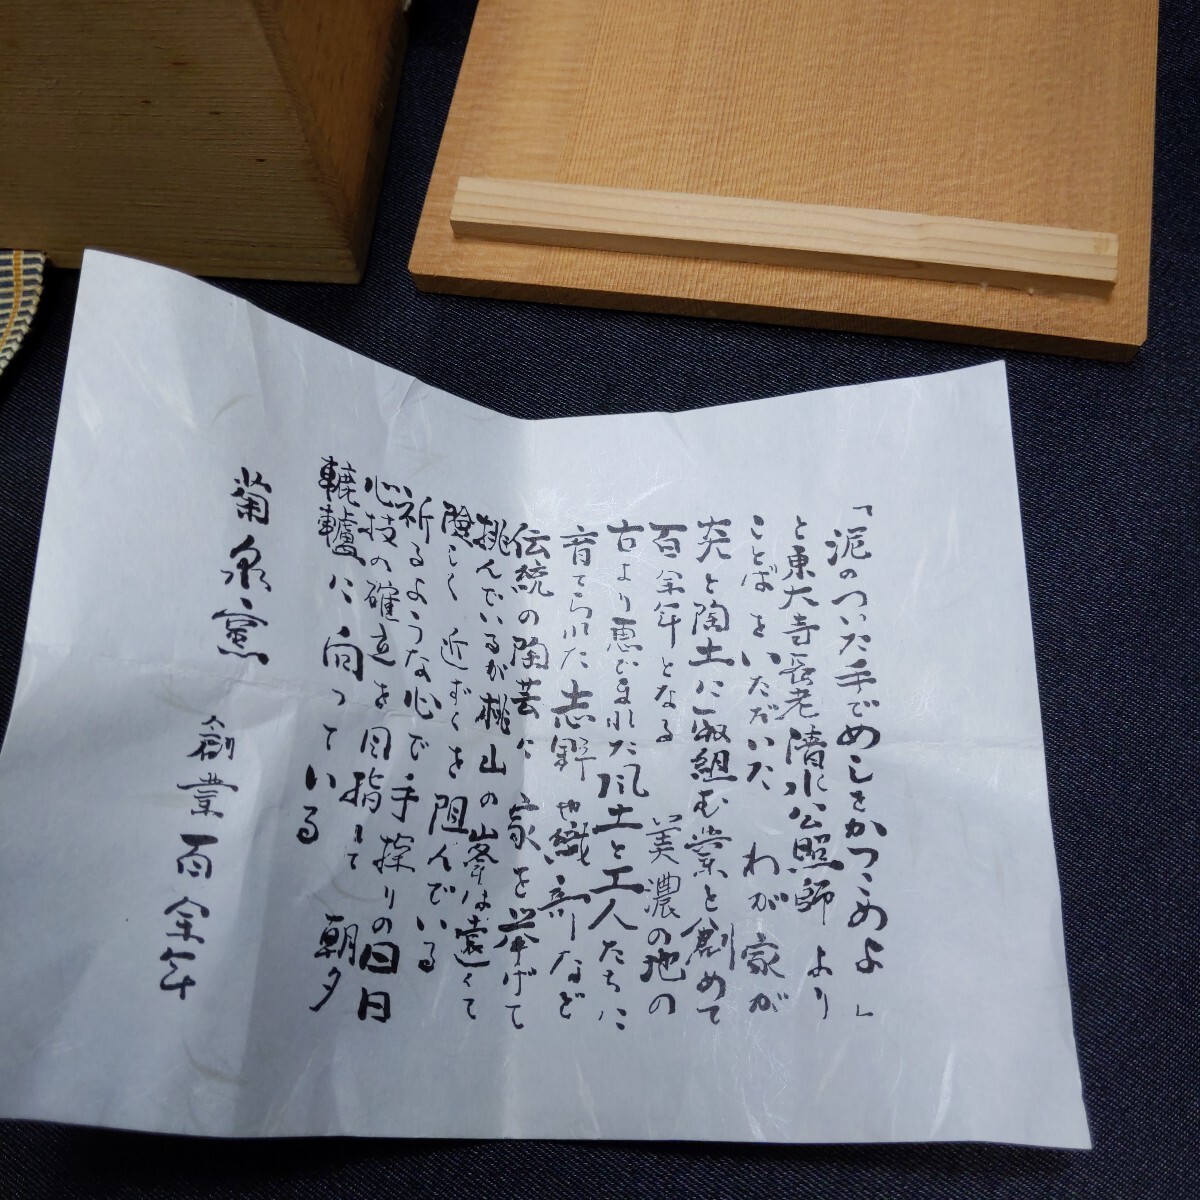 「泥のついた手でめしをかっこめよ」
と東大寺長老清水公照師より
ことばをいただいた わが家が
炎と陶土に取組む業と創めて
百余年となる 美濃の地の
古より恵まれた風土と工人たちに
育てられた志野や織部など
伝統の陶芸に 家を挙げて
挑んでいるが桃山の峯は遠くて
険しく 近ずくを阻んでいる
祈るような心で手探りの日日
心技の確立を目指して 朝夕
轆轤に向っている
菊泉窯 創業百余年